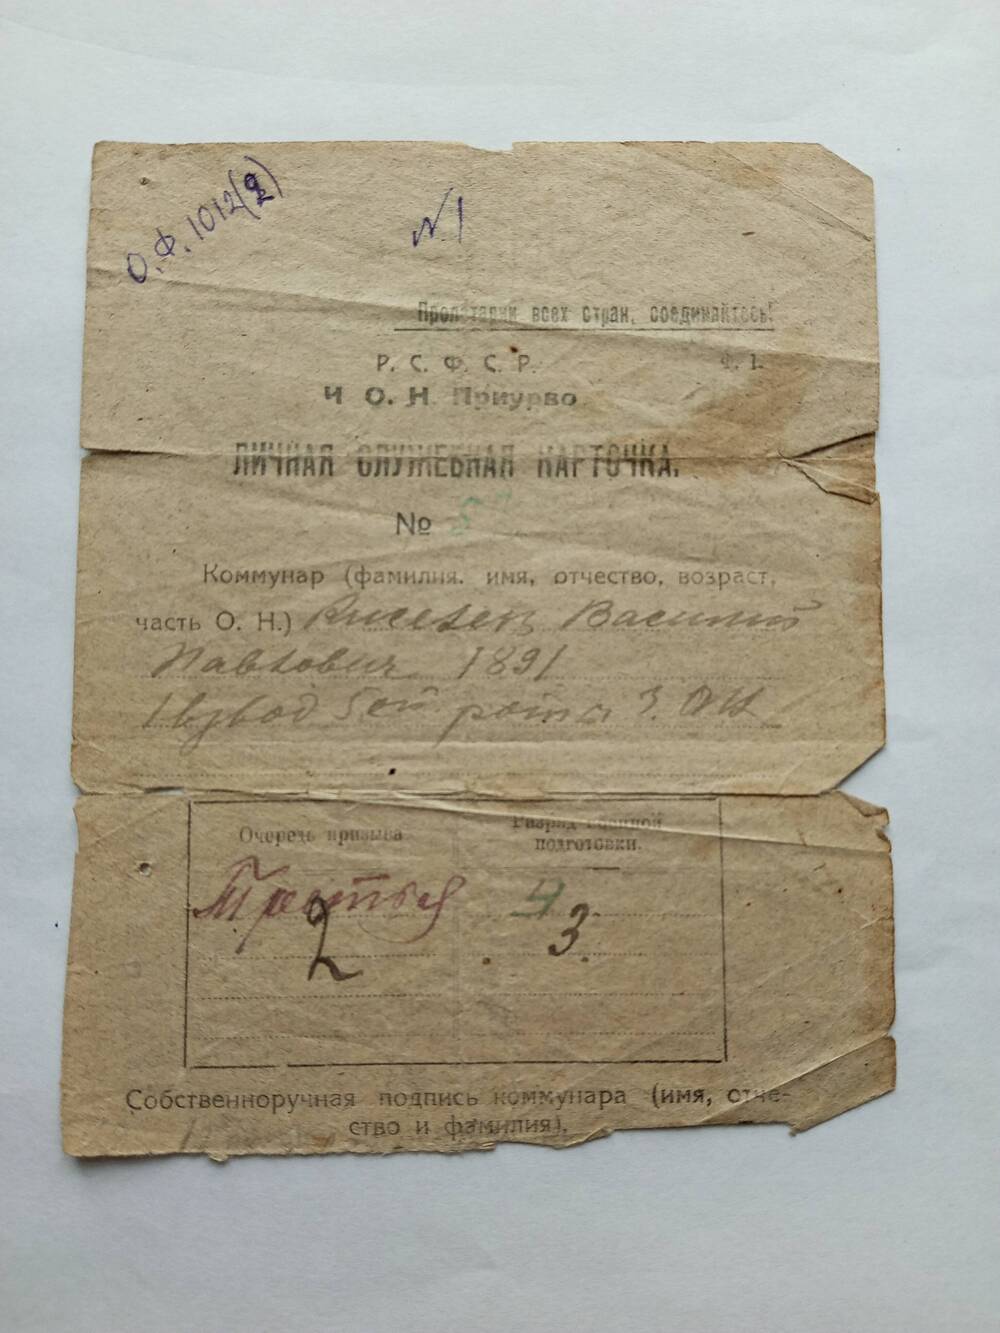 О.Ф. 1012(2)
№1
Пролетарии всех стран, соединяйтесь!
Р. С. Ф. С. Р.
Ф. 1.
Ч О. Н. Приурво
ЛИЧНАЯ СЛУЖЕБНАЯ КАРТОЧКА.
№
Коммунар (фамилия. имя, отчество, возраст,
часть О. Н.) Василий
Павлович 1891
1 взвод 5ой роты 3.
Очередь призыва
Разряд военной
подготовки.
Третья
4
2
3
Собственноручная подпись коммунара (имя, отче-
ство и фамилия).